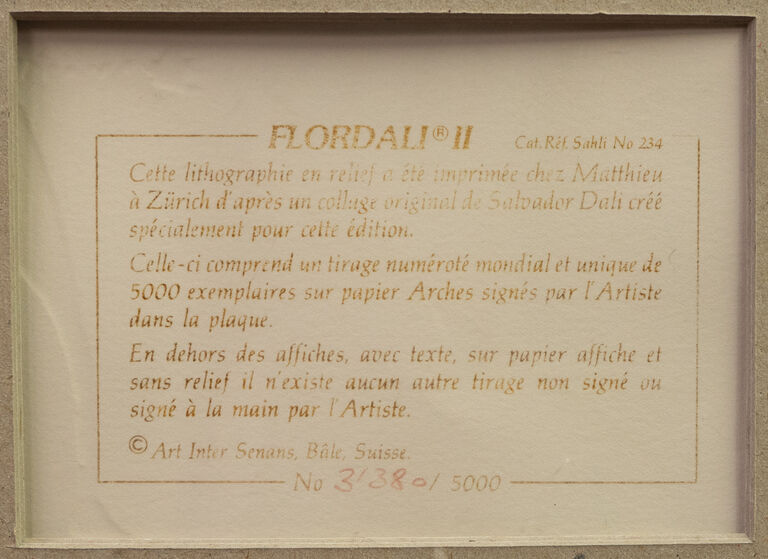 FLORDALI® II Cat. Réf. Sahli No 234
Cette lithographie en relief a été imprimée chez Matthieu
à Zürich d'après un collage original de Salvador Dali créé
spécialement pour cette édition.
Celle-ci comprend un tirage numéroté mondial et unique de
5000 exemplaires sur papier Arches signés par l'Artiste
dans la plaque.
En dehors des affiches, avec texte, sur papier affiche et
sans relief il n'existe aucun autre tirage non signé ou
signé à la main par l'Artiste.
© Art Inter Senans, Bâle, Suisse.
No 3'380/ 5000